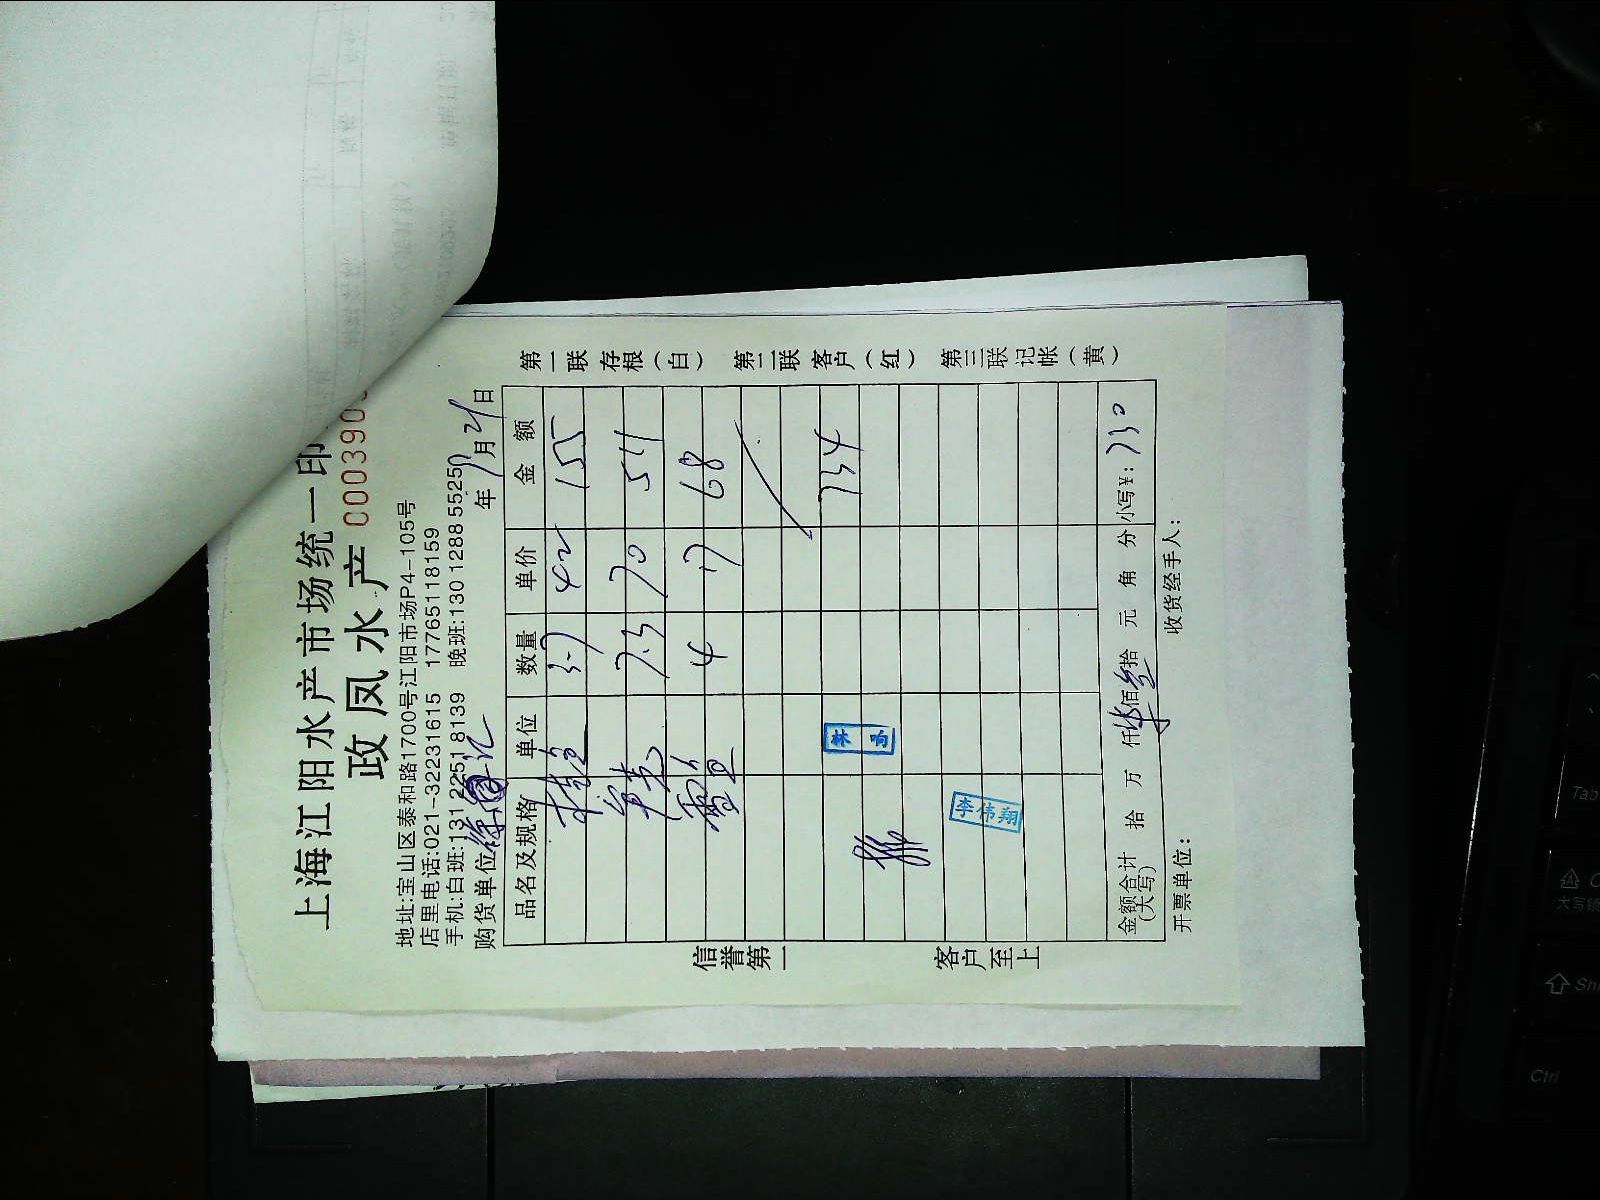 上海江阳水产市场统一印
政凤水产 000390
地址:宝山区泰和路1700号江阳市场P4-105号
店里电话:021-32231615 17765118159
手机:白班:131 2251 8139 晚班:130 1288 5525
购货单位 年 9月21日
品名及规格 单位 数量 单价 金额
3.7 42 155
7.3 70 511
4 17 68
734
朱
李伟翔
金额合计(大写) 拾 万 仟 佰 拾 元 角 分 小写¥: 730
开票单位: 收货经手人:
信誉第一 客户至上
第一联 存根(白) 第二联 客户(红) 第三联 记帐(黄)
Tab
大写锁
Shi
Ctrl